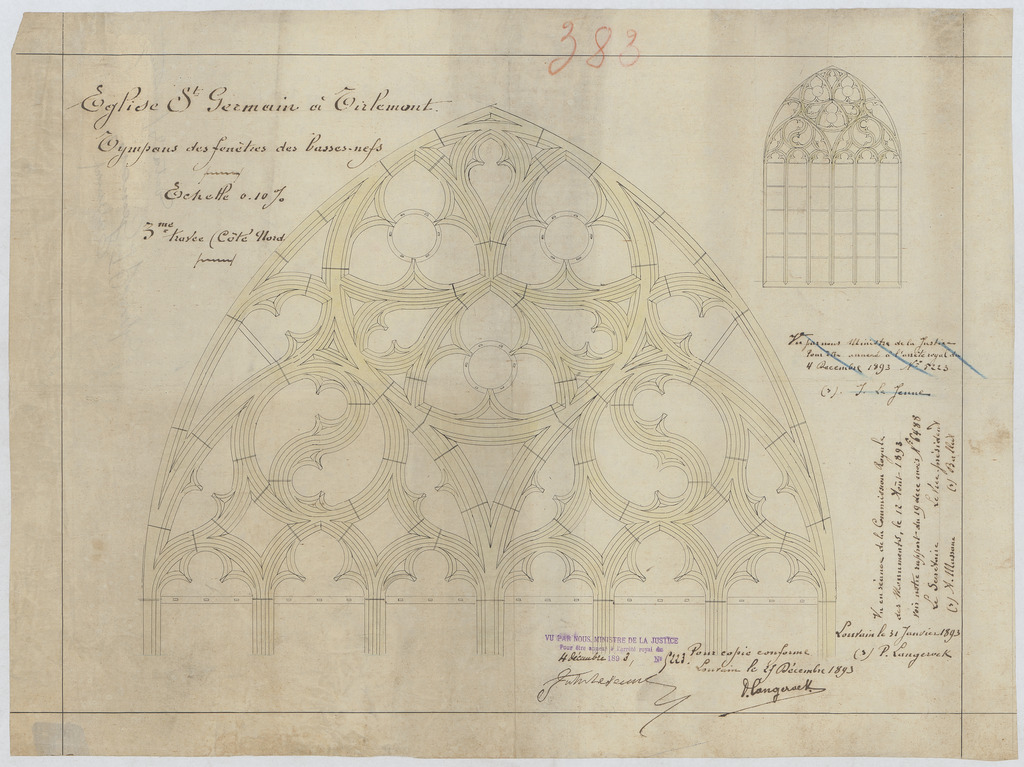 383
Eglise St Germain à Tirlemont.
Tympans des fenêtres des basses-nefs
Echelle 0.10 %
3me travée (Côté Nord
Vu par nous Ministre de la Justice
Pour être annexé à l'arrêté royal du
4 Décembre 1893 No 5223
(s). J. Le Jeune
Vu en séance de la Commission Royale
des Monuments, le 12 Août 1893
voir notre rapport du 19 même mois No 6488
Le Secrétaire Le vice président
(s) A. Massaux (s)
Louvain le 31 Janvier 1893
(s) P. Langerock
VU PAR NOUS, MINISTRE DE LA JUSTICE
Pour être annexé à l'arrêté royal du
4 décembre 1893, No 5223.
Pour copie conforme
Louvain le 27 Décembre 1893
P. Langerock